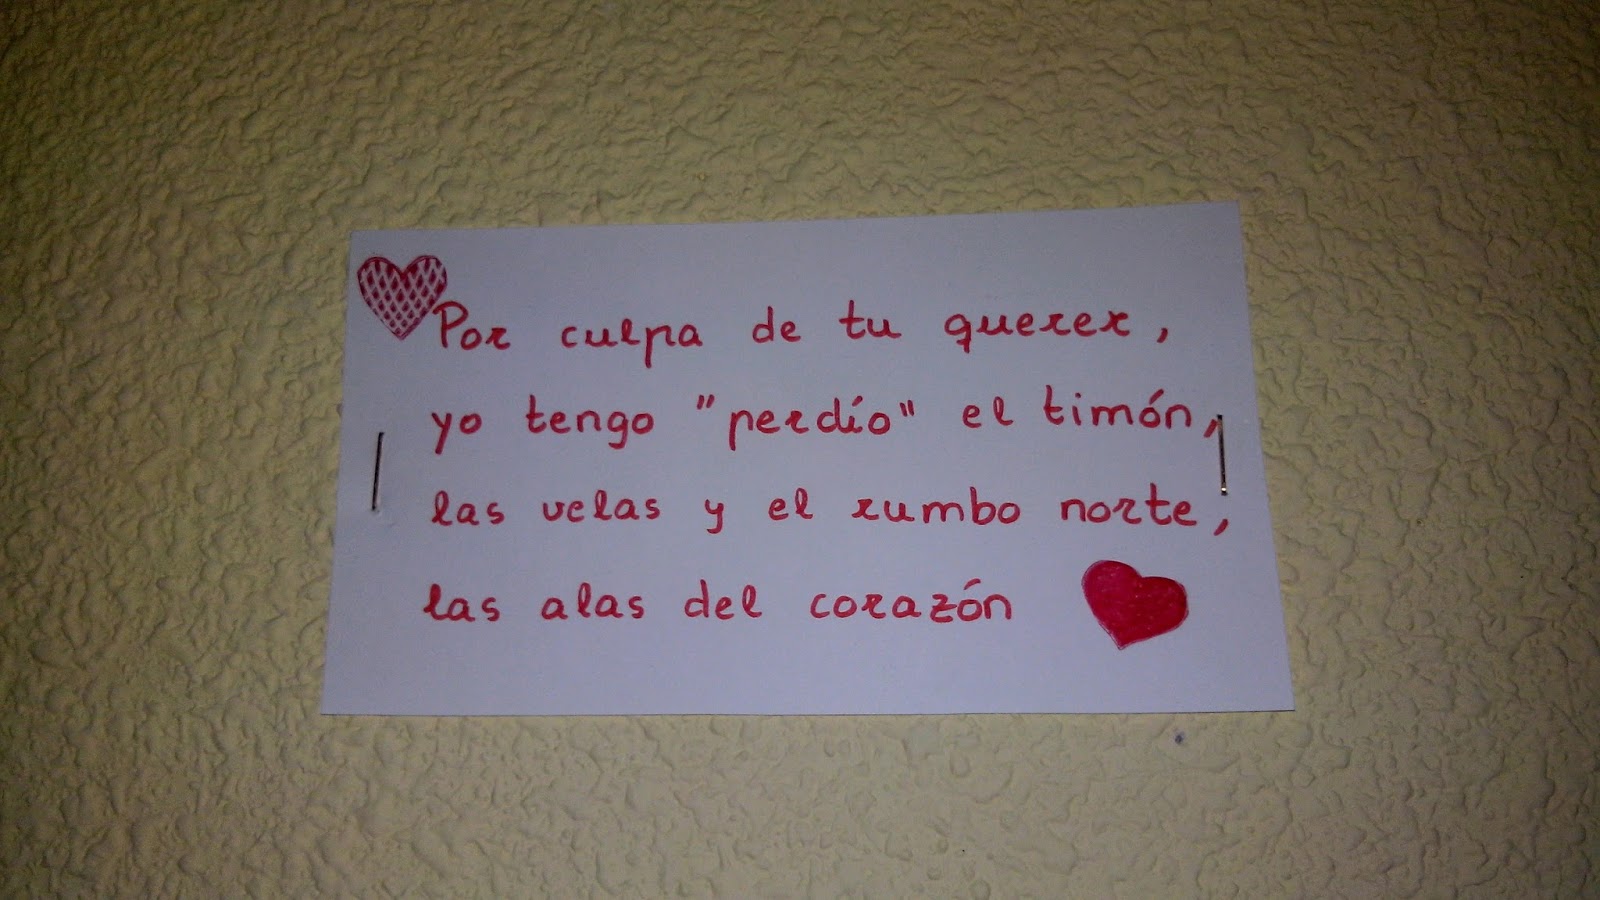 Por culpa de tu querer,
yo tengo "perdío" el timón,
las velas y el rumbo norte,
las alas del corazón